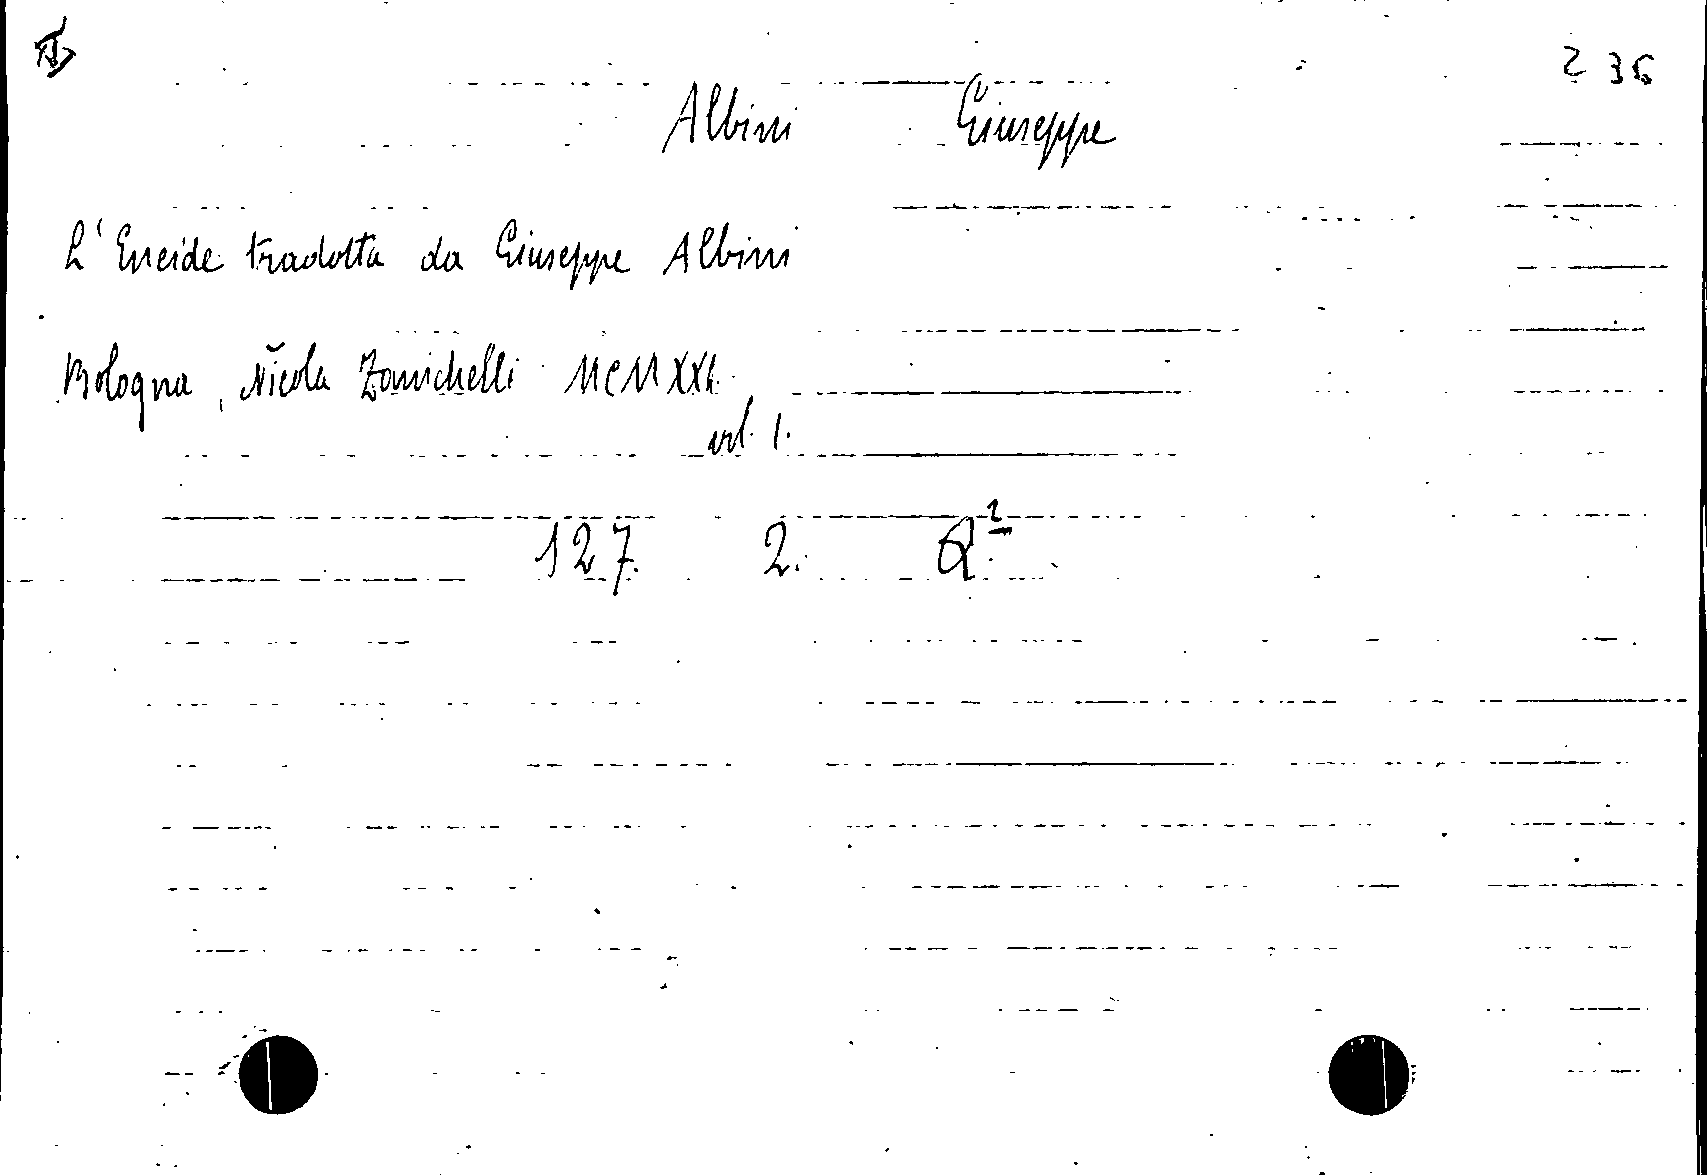 236
Albini Giuseppe
L'Eneide tradotta da Giuseppe Albini
Bologna, Nicola Zanichelli
vol. 1.
127. 2. Q